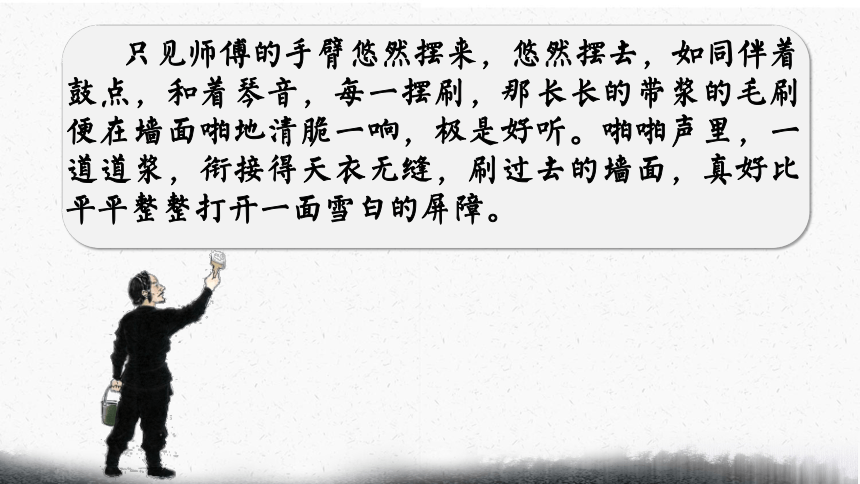 只见师傅的手臂悠然摆来，悠然摆去，如同伴着
鼓点，和着琴音，每一摆刷，那长长的带浆的毛刷
便在墙面啪地清脆一响，极是好听。啪啪声里，一
道道浆，衔接得天衣无缝，刷过去的墙面，真好比
平平整整打开一面雪白的屏障。